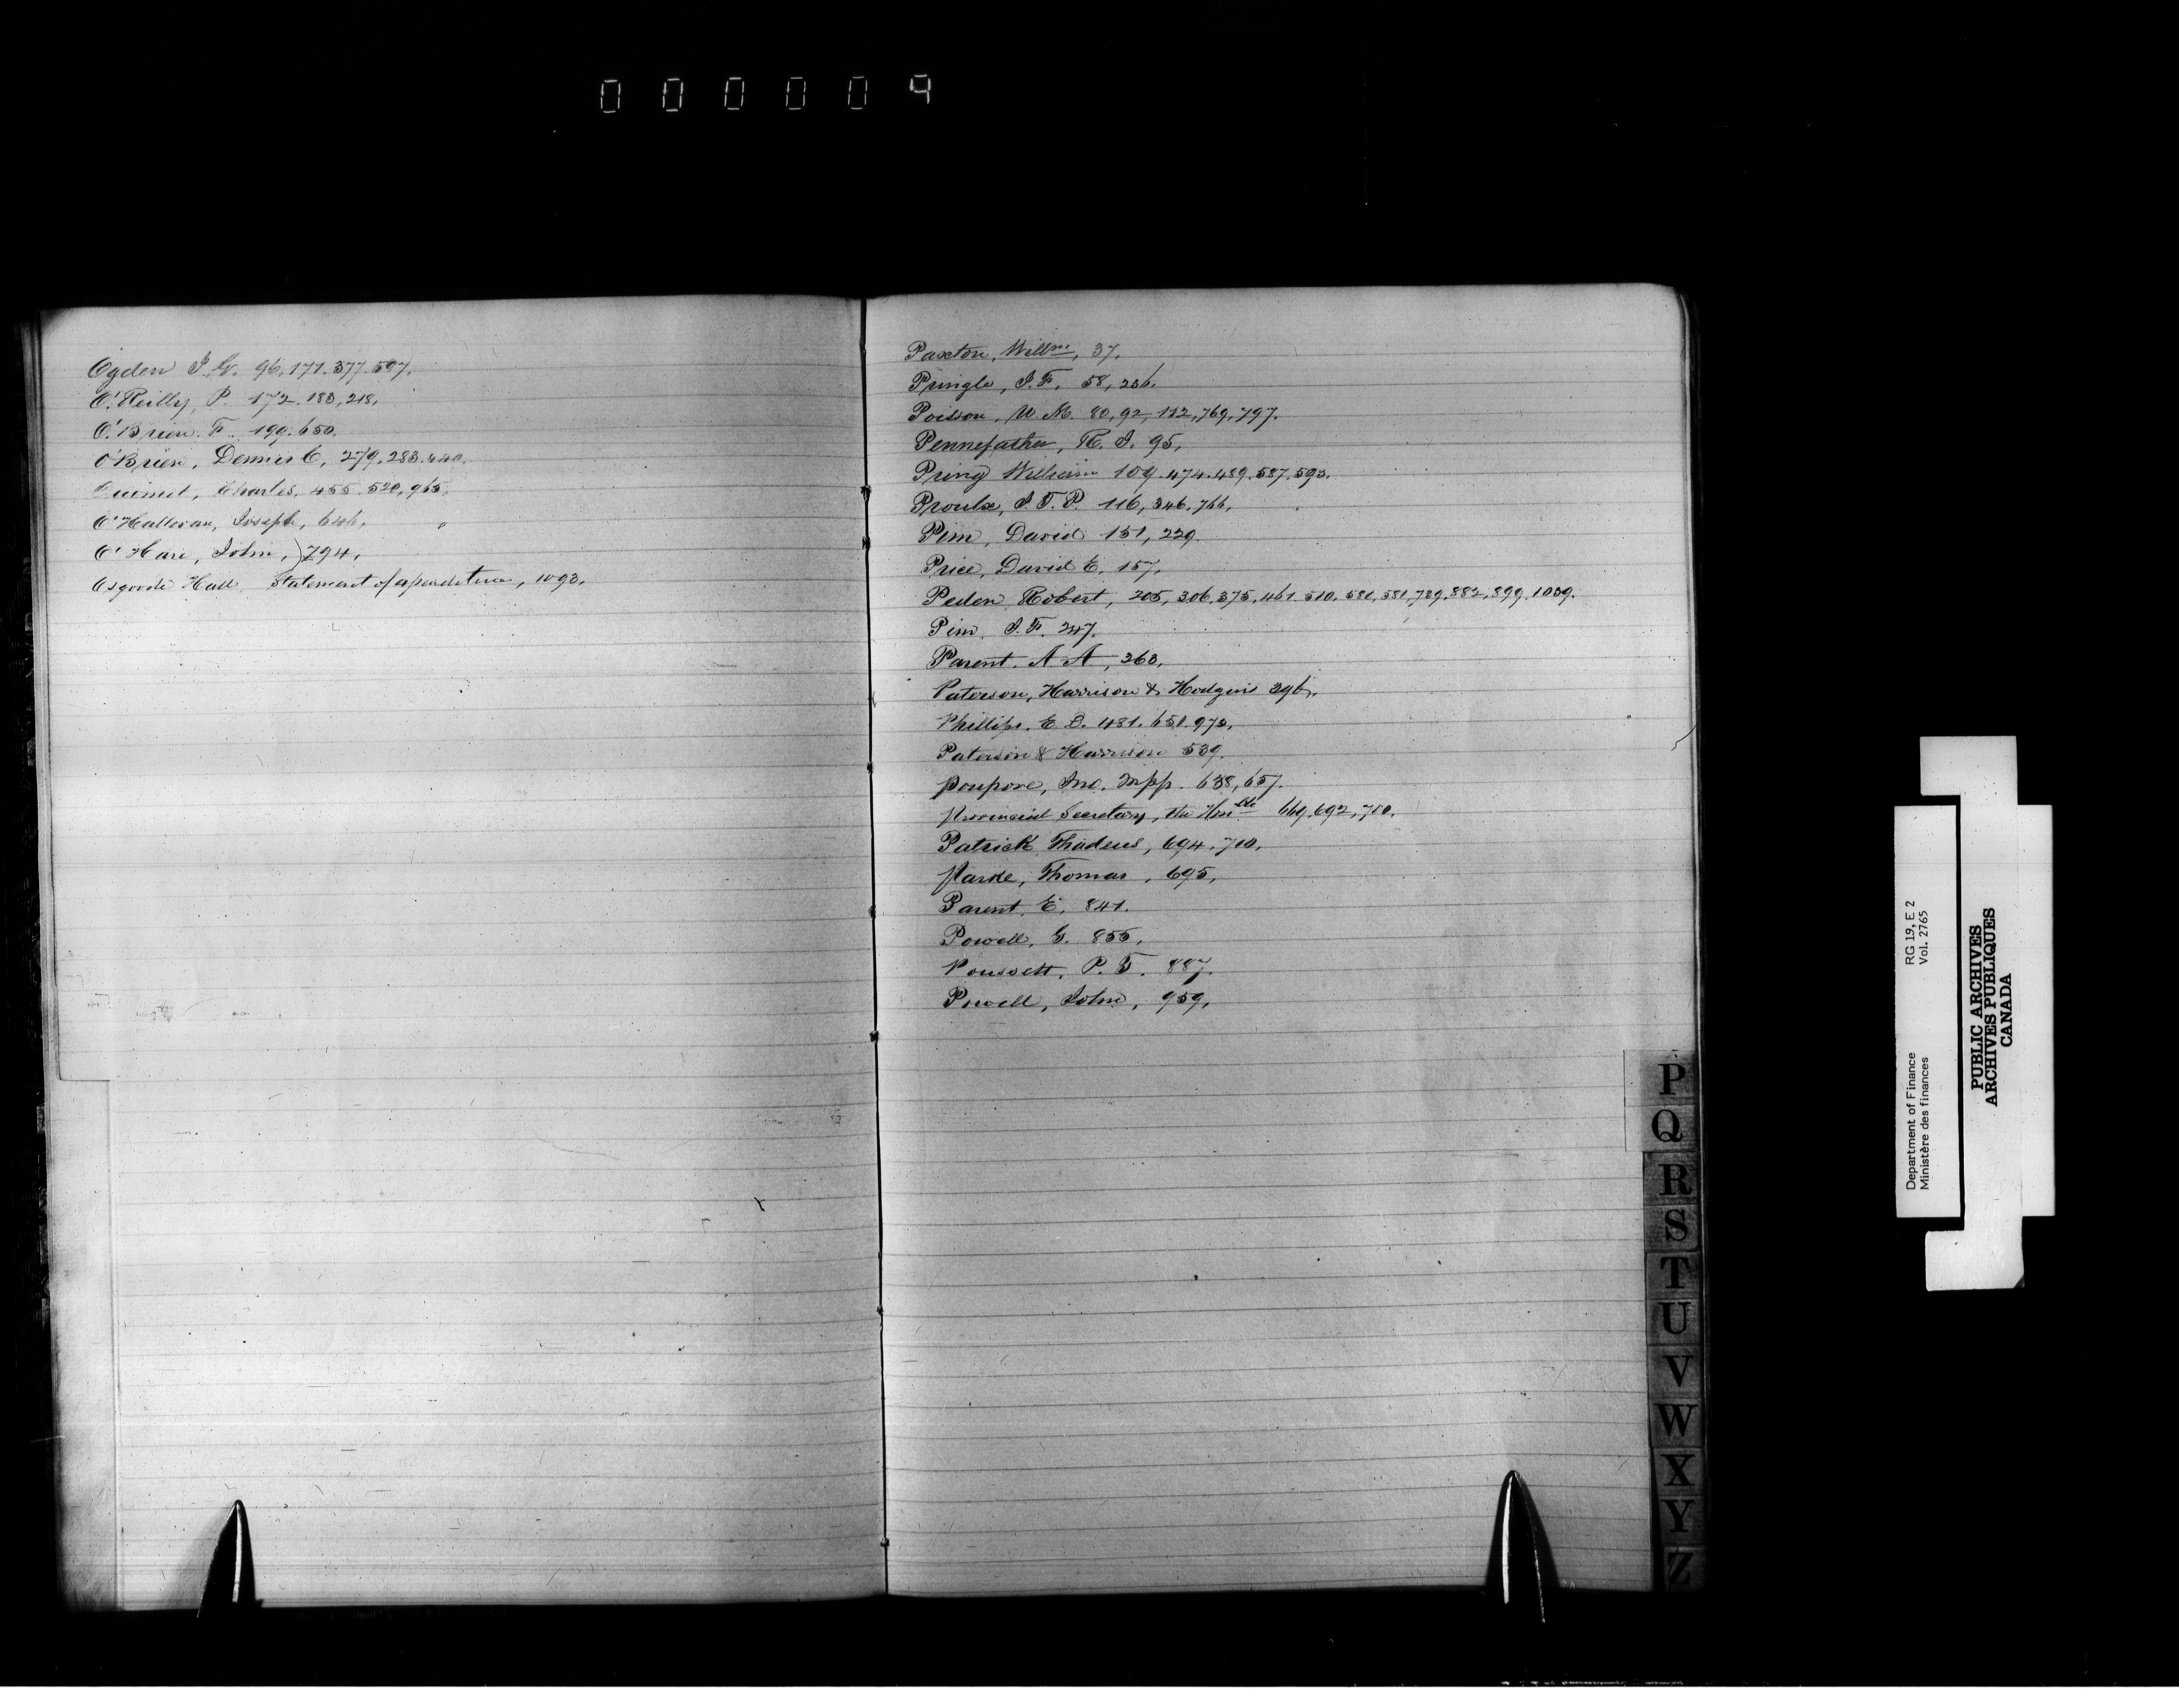 000009
Ogden J. G. 96, 171. 377. 597.
O'Reilly, P. 172. 183, 218.
O'Brien. F. 199. 650.
O'Brien, Dennis C, 279. 283. 440.
Ouimet, Charles. 455. 520, 965.
O'Halloran, Joseph, 646.
O'Hare, John, 794.
Osgoode Hall. Statement of expenditure, 1093.
Paxton, Willm, 37.
Pringle, J. F. 58, 236.
Poisson, W. M. 80, 92, 112, 769, 797.
Pennefather, R. J. 95,
Pring William 109. 474. 489. 587. 593.
Proulx, J. T. P. 116, 346, 766,
Pim, David 151, 229.
Price, David E. 157,
Peden, Robert, 205, 306, 375, 461. 510. 580, 581, 789. 882, 899. 1039.
Pim. J. F. 247.
Parent. A A, 263.
Paterson, Harrison & Hodgins 396.
Phillips. E. D. 481. 651. 973.
Paterson & Harrison 539.
Poupore, Jno. Mpp. 638, 657.
Provincial Secretary, the Honble 669. 692, 710.
Patrick Thadeus, 694. 710.
Parke, Thomas, 695,
Parent, E, 841.
Powell, G. 855,
Poussett, P. T. 887.
Powell, John, 959,
P
Q
R
S
T
U
V
W
X
Y
Z
Department of Finance RG 19, E 2
Ministère des finances Vol. 2765
PUBLIC ARCHIVES
ARCHIVES PUBLIQUES
CANADA